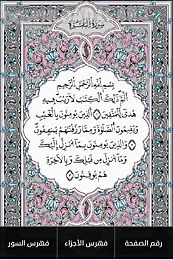 سُورَةُ البَقَرَةِ
بِسْمِ اللَّهِ الرَّحْمَٰنِ الرَّحِيمِ
الٓمٓ ذَٰلِكَ الْكِتَٰبُ لَا رَيْبَ فِيهِ
هُدًى لِّلْمُتَّقِينَ الَّذِينَ يُؤْمِنُونَ بِالْغَيْبِ
وَيُقِيمُونَ الصَّلَوٰةَ وَمِمَّا رَزَقْنَٰهُمْ يُنفِقُونَ
وَالَّذِينَ يُؤْمِنُونَ بِمَا أُنزِلَ إِلَيْكَ
وَمَا أُنزِلَ مِن قَبْلِكَ وَبِالْآخِرَةِ
هُمْ يُوقِنُونَ
رقم الصفحة فهرس الأجزاء فهرس السور